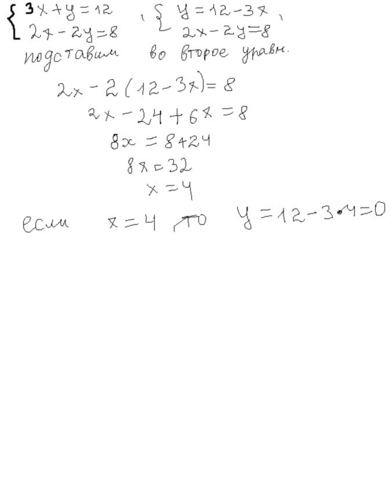 { 3x+y=12 , { y=12-3x ,
2x-2y=8 2x-2y=8
подставим во второе уравн.
2x-2(12-3x)=8
2x-24+6x=8
8x=8+24
8x=32
x=4
если x=4, то y=12-3·4=0